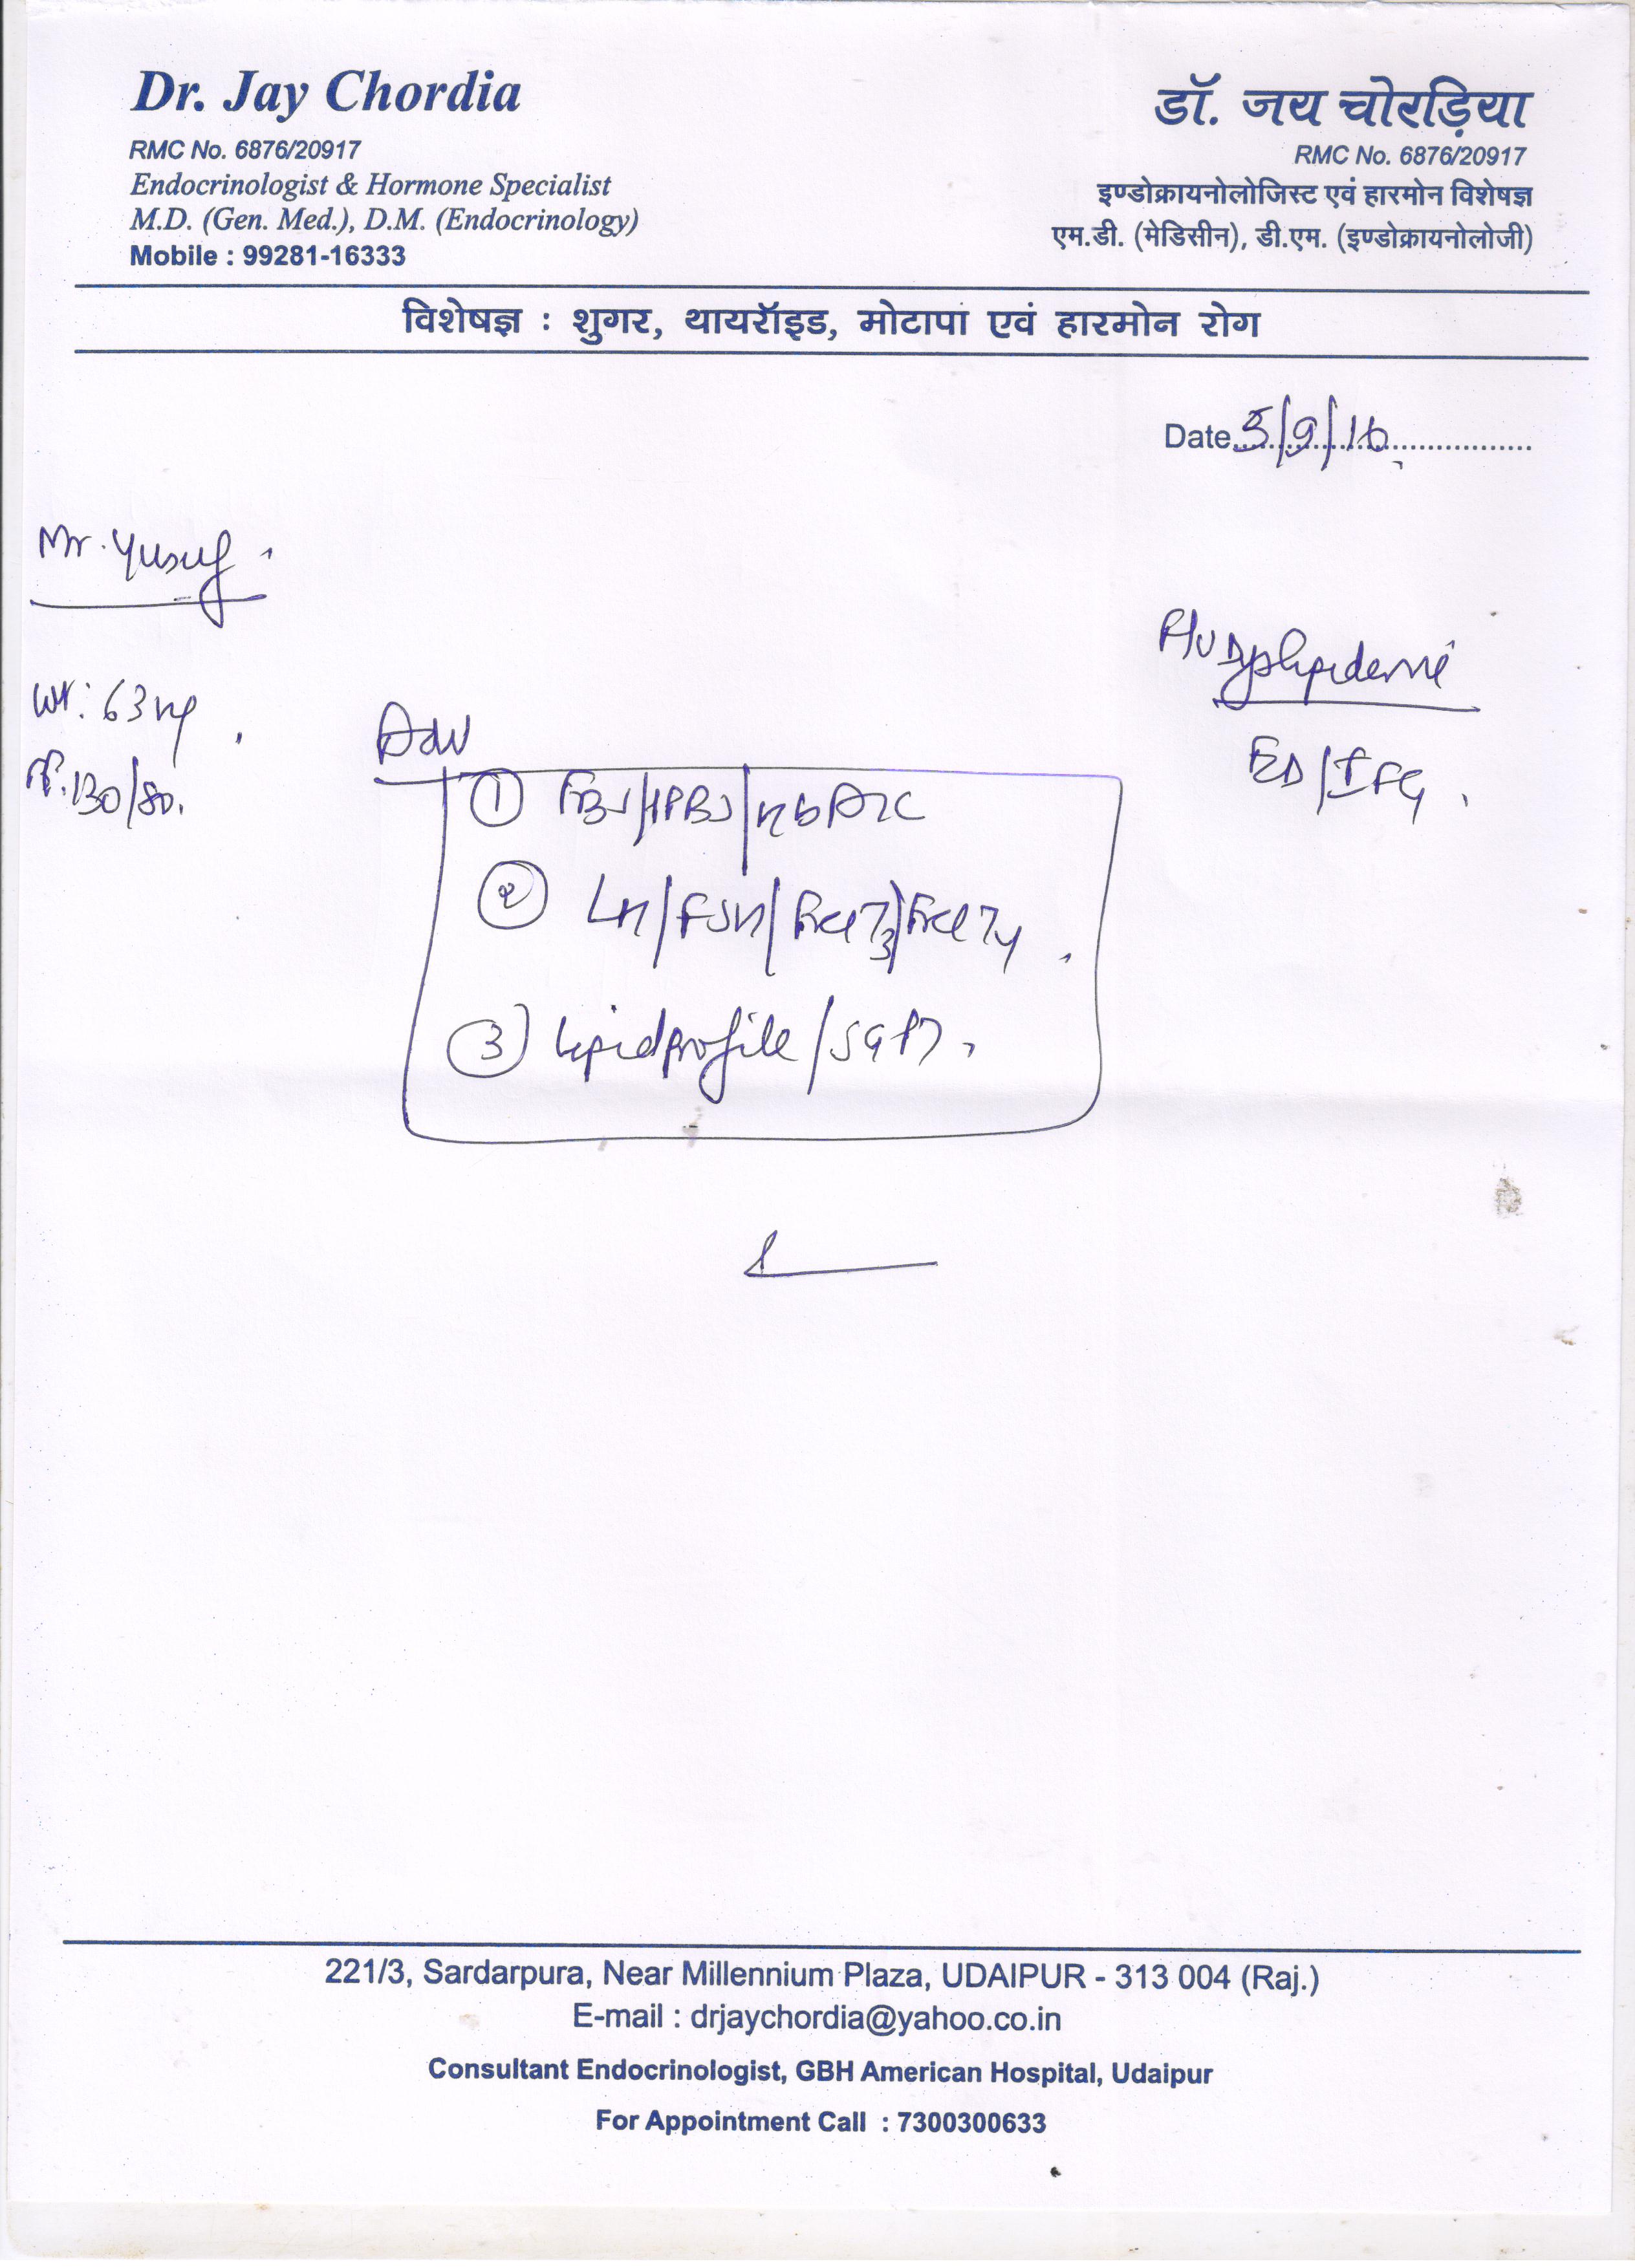 Dr. Jay Chordia
RMC No. 6876/20917
Endocrinologist & Hormone Specialist
M.D. (Gen. Med.), D.M. (Endocrinology)
Mobile : 99281-16333
डॉ. जय चोरड़िया
RMC No. 6876/20917
इण्डोक्रायनोलोजिस्ट एवं हारमोन विशेषज्ञ
एम.डी. (मेडिसीन), डी.एम. (इण्डोक्रायनोलोजी)
विशेषज्ञ : शुगर, थायरॉइड, मोटापा एवं हारमोन रोग
Date 5/9/16
Mr. Yusuf
Wt: 63 kg
130/80.
Dyslipidemi
ED/IFG.
Adv
① FBS/ /HbA1C
② LH/FSH/Free T3/Free T4.
③ Lipid profile/SGPT.
221/3, Sardarpura, Near Millennium Plaza, UDAIPUR - 313 004 (Raj.)
E-mail : drjaychordia@yahoo.co.in
Consultant Endocrinologist, GBH American Hospital, Udaipur
For Appointment Call : 7300300633